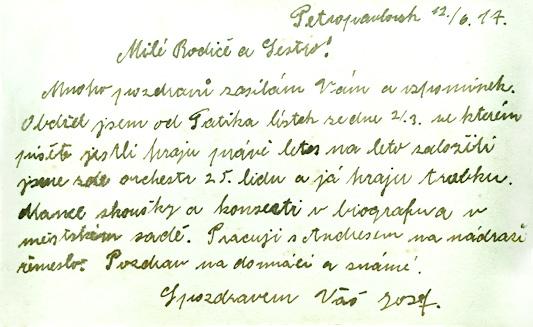 Petropavlovsk 12./6.17.
Milé Rodiče a Sestro!
Mnoho pozdravů zasílám Vám a vzpomínek.
Obdržel jsem od Tatíka lístek ze dne 2/3. ve kterém
píšete jestli hraju právě letos na leto založili
jsme zde orchestr 25. lidu a já hraju trubku.
zkoušky a koncerti v biografu a v
městském sadě. Pracuji s Andresem na nádraží
řemeslo. Pozdrav na domácí a známé.
S pozdravem Váš Josef.